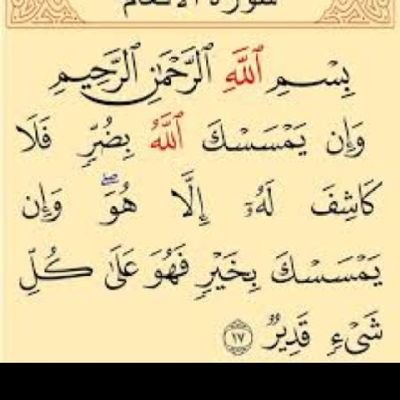 سورة الأنعام
بِسْمِ ٱللَّهِ ٱلرَّحْمَٰنِ ٱلرَّحِيمِ
وَإِن يَمْسَسْكَ ٱللَّهُ بِضُرٍّ فَلَا
كَاشِفَ لَهُۥٓ إِلَّا هُوَ ۖ وَإِن
يَمْسَسْكَ بِخَيْرٍ فَهُوَ عَلَىٰ كُلِّ
شَىْءٍ قَدِيرٌ ١٧